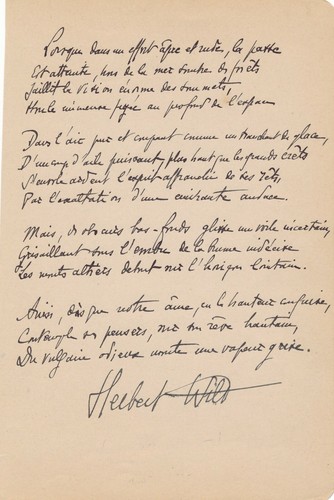 Lorsque dans un effort âpre et rude, la passe
Est atteinte, hors de la mer sombre des forêts
Jaillit la vision énorme des sommets,
Houle immense figée au profond de l'espace
Dans l'air pur et coupant comme un tranchant de glace,
D'un coup d'aile puissant, plus haut que les grands crêts
S'enivre ardent l'esprit affranchi de ses rets,
Par l'exaltation d'une enivrante audace.
Mais, des obscurs bas-fonds glisse un voile incertain,
Grisaillant sous l'ombre de la brume indécise
Les monts altiers debout sur l'horizon lointain.
Ainsi, dès que notre âme, en la hauteur conquise,
Contemple ses pensers, sur son rêve hautain,
Du vulgaire odieux monte une vapeur grise.
Herbert Wild